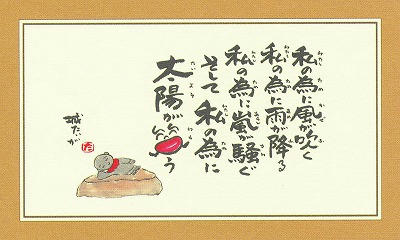 私の為に風が吹く
私の為に雨が降る
私の為に嵐が騒ぐ
そして私の為に
太陽が笑う
城たいが